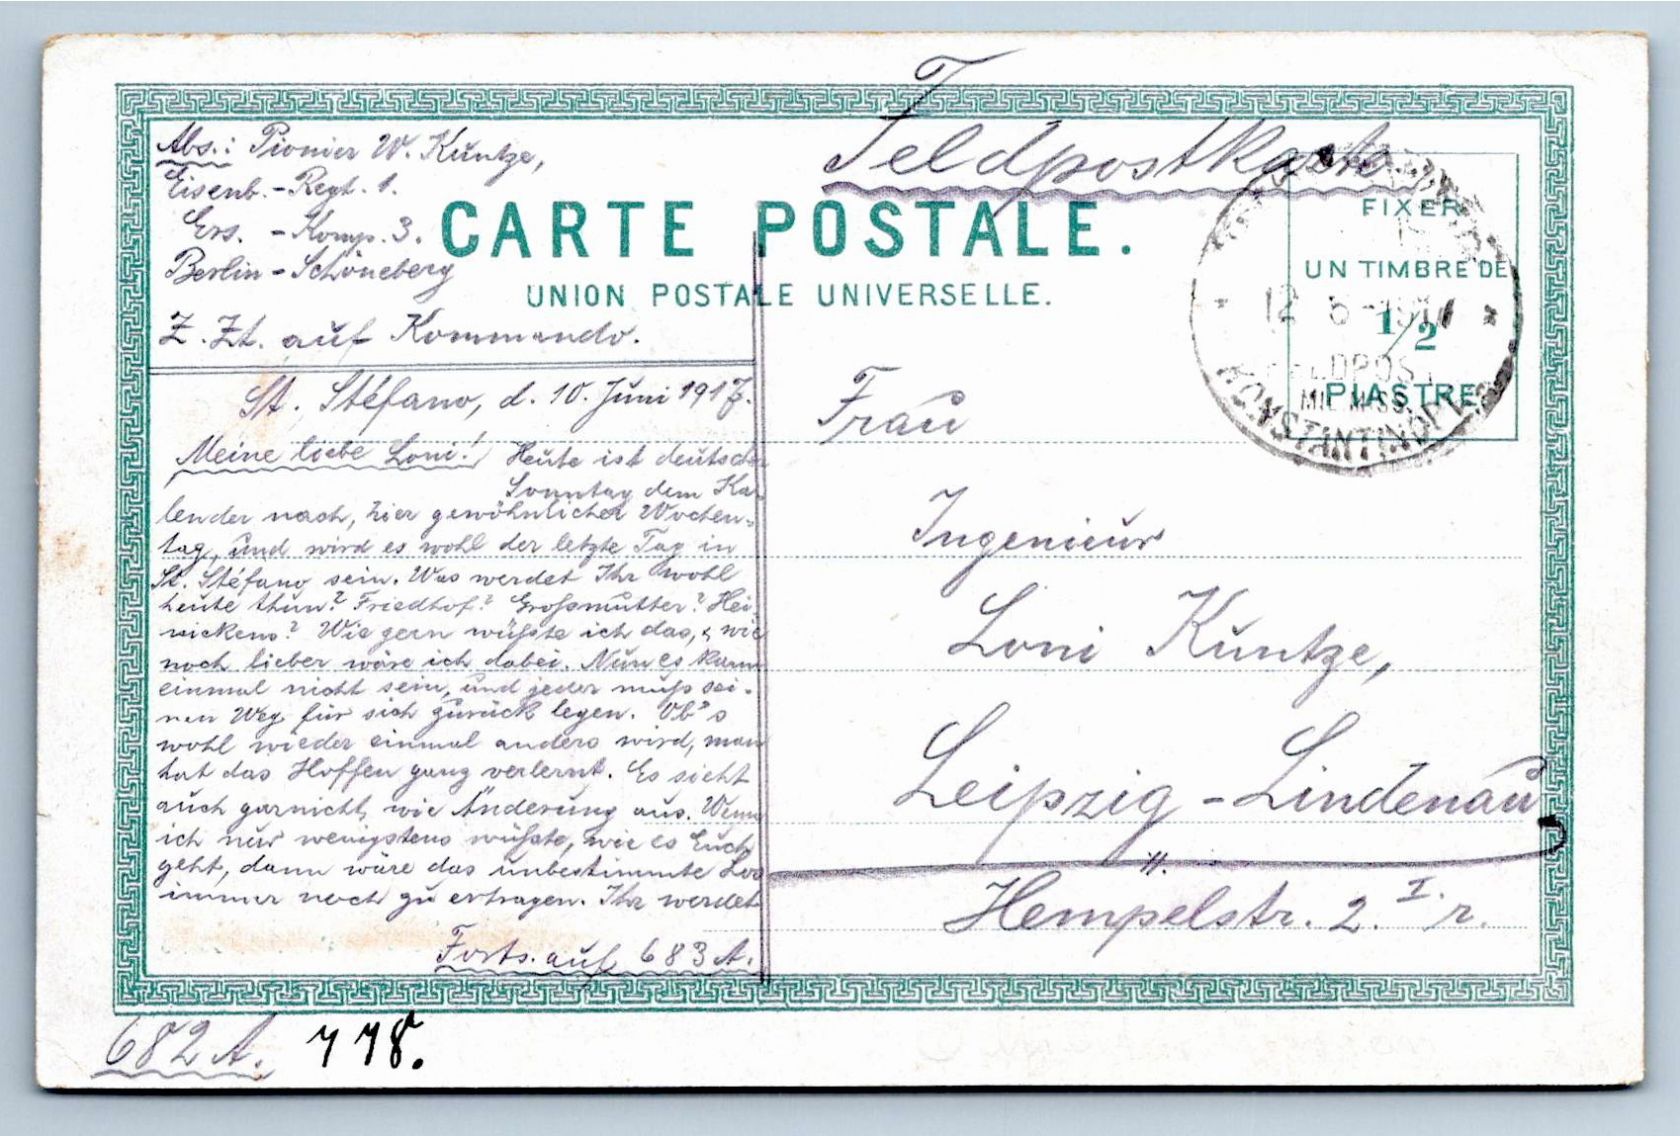 Feldpostkarte
Abs.: Pionier W. Kuntze,
Eisenb.-Regt. 1.
Ers. - Komp. 3.
Berlin-Schöneberg
Z. Zt. auf Kommando.
CARTE POSTALE.
UNION POSTALE UNIVERSELLE.
FIXER
UN TIMBRE DE
1/2
PIASTRE
FELDPOST
MIL. MISS.
KONSTANTINOPEL
St. Stéfano, d. 10. Juni 1917.
Meine liebe Loni! Heute ist deutscher
Sonntag dem Ka-
lender nach, hier gewöhnlicher Wochen-
tag, und wird es wohl der letzte Tag in
St. Stéfano sein. Was werdet Ihr wohl
heute thun? Friedhof? Großmutter? Hei-
nickens? Wie gern wüßte ich das, & wie
noch lieber wäre ich dabei. Nun es kann
einmal nicht sein, und jeder muß sei-
nen Weg für sich zurück legen. Ob's
wohl wieder einmal anders wird, man
hat das Hoffen ganz verlernt. Es sieht
auch garnicht wie Änderung aus. Wenn
ich nur wenigstens wüßte, wie es Euch
geht, dann wäre das unbestimmte Los
immer noch zu ertragen. Ihr werdet
Forts. auf 683 A.
Frau
Ingenieur
Loni Kuntze,
Leipzig-Lindenau
Hempelstr. 2. I. r.
682 A. 778.